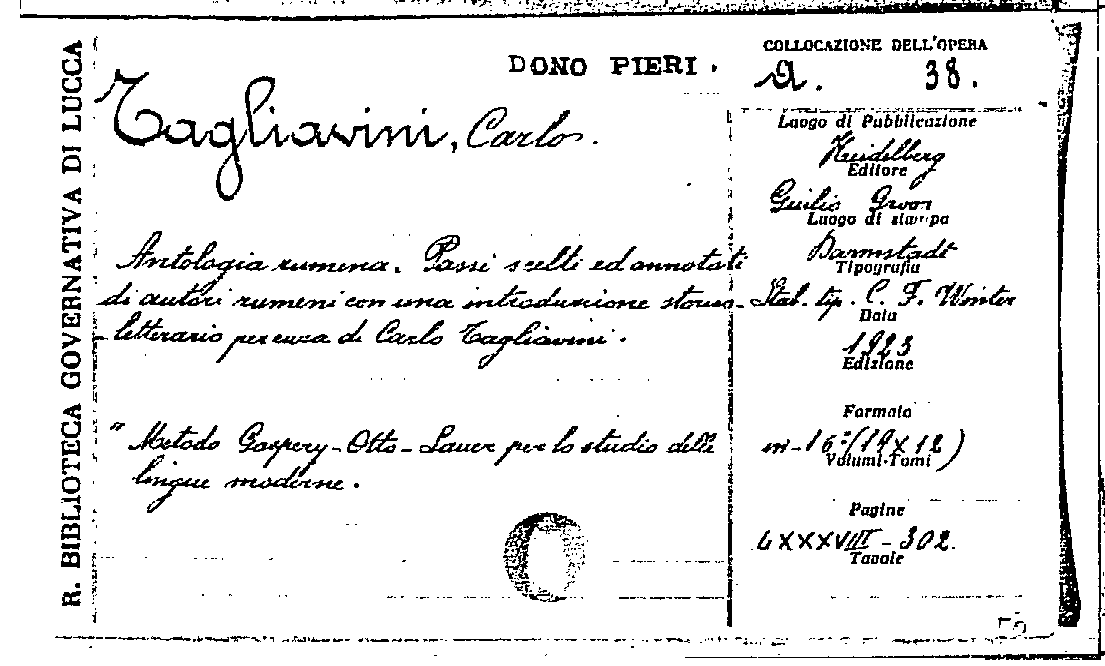 R. BIBLIOTECA GOVERNATIVA DI LUCCA
DONO PIERI.
COLLOCAZIONE DELL'OPERA
a. 38.
Tagliavini, Carlo.
Antologia rumena. Passi scelti ed annotati
di autori rumeni con una introduzione storico-
letterario per cura di Carlo Tagliavini.
" Metodo Gaspery-Otto-Sauer per lo studio delle
lingue moderne.
Luogo di Pubblicazione
Heidelberg
Editore
Giulio Groos
Luogo di stampa
Darmstadt
Tipografia
Stab. tip. C. F. Winter
Data
1923
Edizione
Formato
in-16°(19X12)
Volumi-Tomi
Pagine
LXXXVIII-302.
Tavole